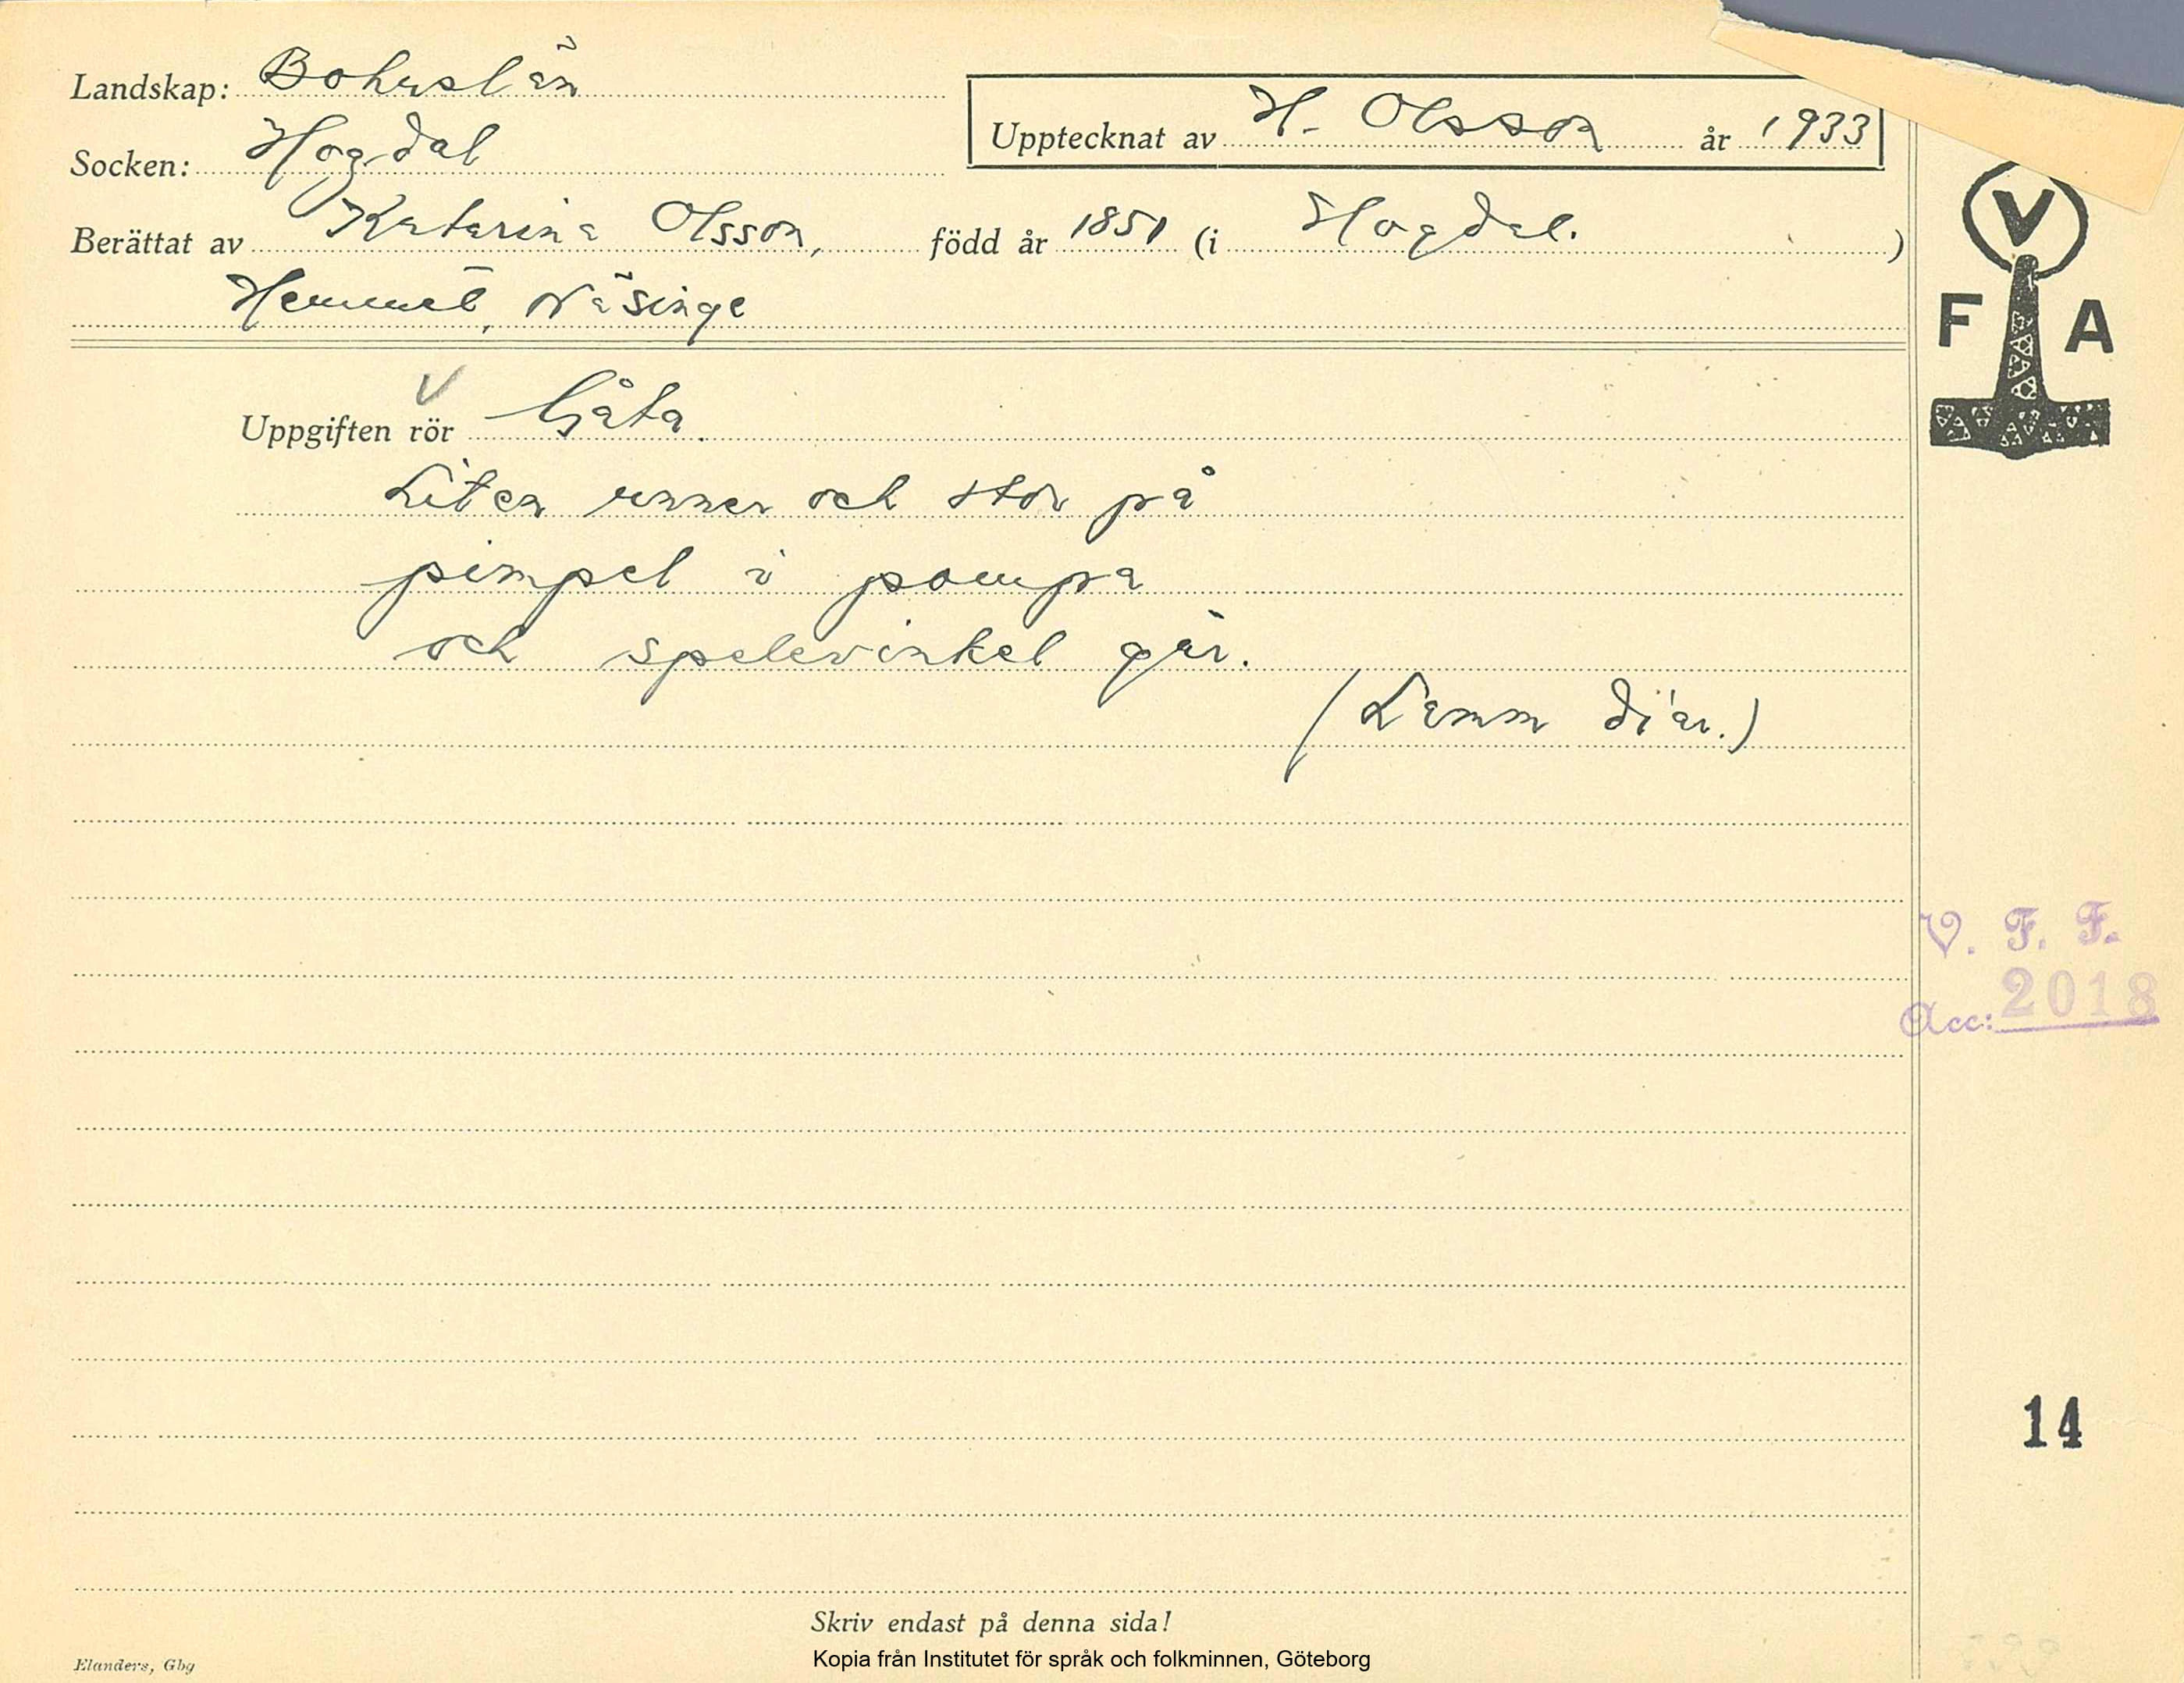 Landskap: Bohuslän
Upptecknat av H. Olsson år 1933
Socken: Hogdal
Berättat av Katarina Olsson, född år 1851 (i Hogdal. )
Hemmet, Näsinge
V
F A
V
Uppgiften rör Gåta.
Liten unner och stor på
pimpel i pompa
och spelevinkel går.
(Lamm di'ar.)
V. F. F.
Acc: 2018
14
Skriv endast på denna sida!
Kopia från Institutet för språk och folkminnen, Göteborg
Elanders, Gbg